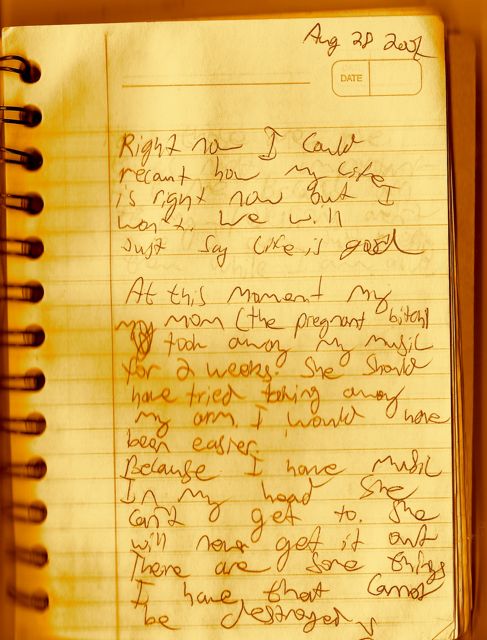 Aug 28 2002
DATE
Right now I could
recant how my life
is right now but I
won't. We will
Just say life is good
At this moment my
my mom (the pregnant bitch)
took away my music
for 2 weeks. She should
have tried taking away
my arm. I would have
been easier.
Because I have music
In my head she
can't get to. She
will never get it out
There are some things
I have that cannot
be destroyed